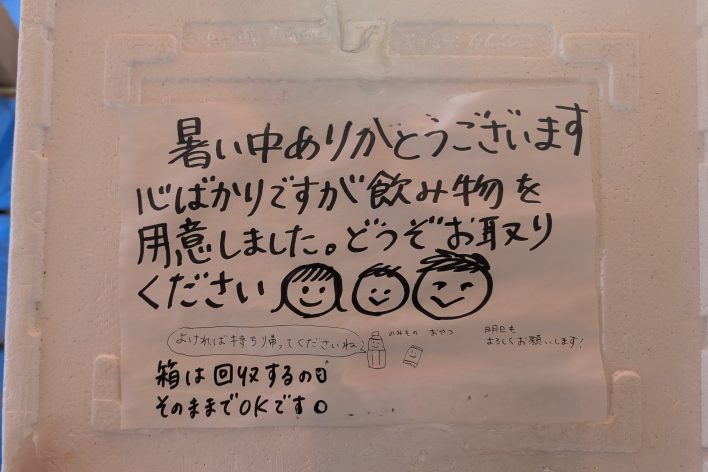 暑い中ありがとうございます
心ばかりですが飲み物を
用意しました。どうぞお取り
ください
よければ持ち帰ってくださいね
のみもの おやつ
明日も
よろしくお願いします!
箱は回収するので
そのままでOKです。